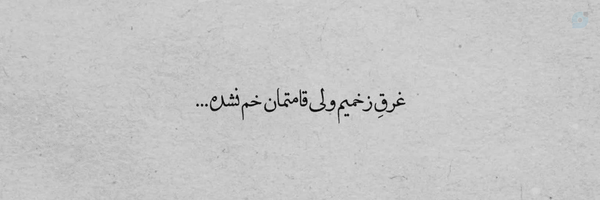 غرقِ زخمیم ولی قامتمان خم نشده...